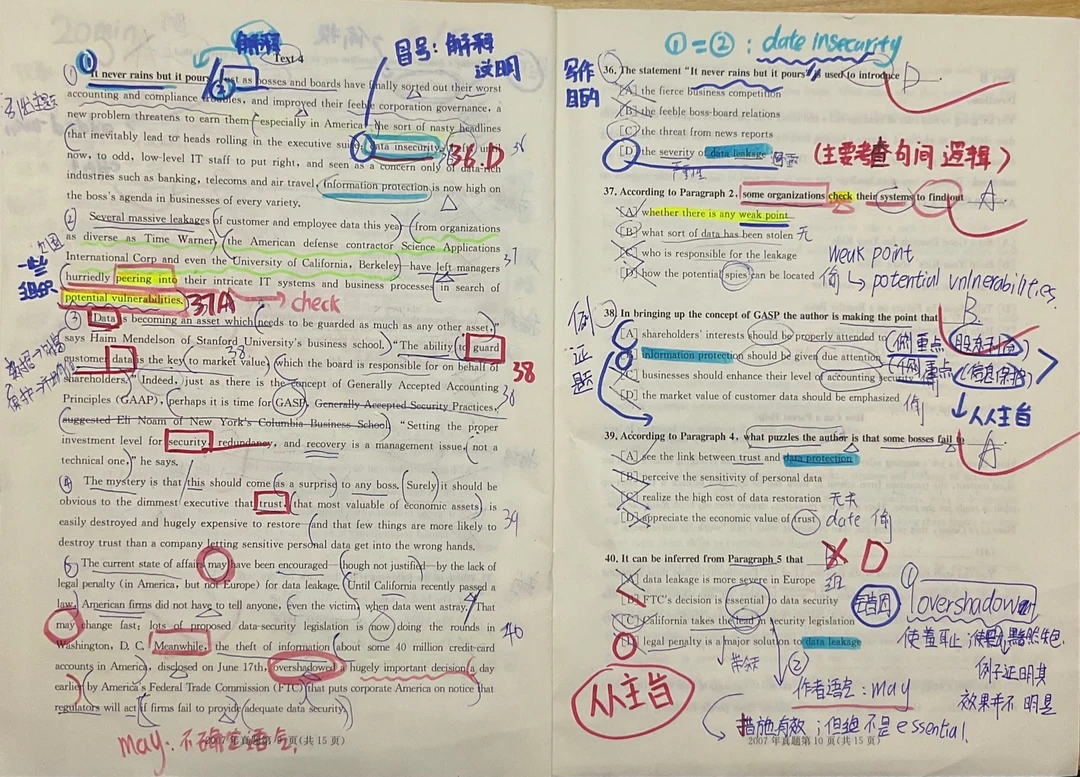 20min
解释
Text 4
冒号：解释
说明
① It never rains but it pours. Just as bosses and boards have finally sorted out their worst
accounting and compliance troubles, and improved their feeble corporation governance, a
new problem threatens to earn them—especially in America—the sort of nasty headlines
that inevitably lead to heads rolling in the executive suite: data insecurity. until
36.D
36
now, to odd, low-level IT staff to put right, and seen as a concern only of data-rich
industries such as banking, telecoms and air travel, information protection is now high on
the boss's agenda in businesses of every variety.
② Several massive leakages of customer and employee data this year—from organizations
as diverse as Time Warner, the American defense contractor Science Applications
International Corp and even the University of California, Berkeley—have left managers
37
一些
组织
hurriedly peering into their intricate IT systems and business processes in search of
potential vulnerabilities.
37A
check
③ "Data is becoming an asset which needs to be guarded as much as any other asset,"
says Haim Mendelson of Stanford University's business school. "The ability to guard
customer data is the key to market value, which the board is responsible for on behalf of
38
shareholders." Indeed, just as there is the concept of Generally Accepted Accounting
38
Principles (GAAP), perhaps it is time for GASP, Generally Accepted Security Practices,
suggested Eli Noam of New York's Columbia Business School. "Setting the proper
investment level for security, redundancy, and recovery is a management issue, not a
technical one," he says.
④ The mystery is that this should come as a surprise to any boss. Surely it should be
obvious to the dimmest executive that trust, that most valuable of economic assets, is
39
easily destroyed and hugely expensive to restore—and that few things are more likely to
destroy trust than a company letting sensitive personal data get into the wrong hands.
⑤ The current state of affairs may have been encouraged—though not justified—by the lack of
legal penalty (in America, but not Europe) for data leakage. Until California recently passed a
law, American firms did not have to tell anyone, even the victim, when data went astray. That
may change fast: lots of proposed data-security legislation is now doing the rounds in
40
Washington, D. C. Meanwhile, the theft of information about some 40 million credit-card
accounts in America, disclosed on June 17th, overshadowed a hugely important decision a day
earlier by America's Federal Trade Commission (FTC) that puts corporate America on notice that
regulators will act if firms fail to provide adequate data security.
may：不确定语气.
2007 年真题第 9 页(共 15 页)
①=②：date insecurity
写作
目的
36. The statement "It never rains but it pours" is used to introduce
D
[A] the fierce business competition
[B] the feeble boss-board relations
[C] the threat from news reports
[D] the severity of data leakage
严重性
(主要考查句间 逻辑)
37. According to Paragraph 2, some organizations check their systems to find out
A
[A] whether there is any weak point
[B] what sort of data has been stolen 无
[C] who is responsible for the leakage
[D] how the potential spies can be located
weak point
偷 potential vulnerabilities.
例
证
题
38. In bringing up the concept of GASP the author is making the point that
B
[A] shareholders' interests should be properly attended to
[B] information protection should be given due attention
[C] businesses should enhance their level of accounting security
[D] the market value of customer data should be emphasized
偷
人人主旨
39. According to Paragraph 4, what puzzles the author is that some bosses fail to
A
[A] see the link between trust and data protection
[B] perceive the sensitivity of personal data
[C] realize the high cost of data restoration 无关
[D] appreciate the economic value of trust date 偷
40. It can be inferred from Paragraph 5 that
D
[A] data leakage is more severe in Europe
[B] FTC's decision is essential to data security
[C] California takes the lead in security legislation
[D] legal penalty is a major solution to data leakage
错因
① overshadow
例子证明其
效果并不 明显
② 作者语气：may
人人主旨
措施有效；但绝不是essential.
2007 年真题第 10 页(共 15 页)